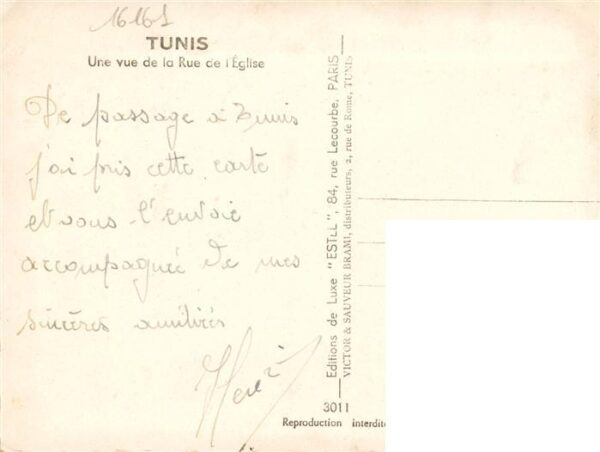 16161
TUNIS
Une vue de la Rue de l'Église
De passage à Tunis
j'ai pris cette carte
et vous l'envoie
accompagnée de mes
sincères amitiés
Editions de Luxe "ESTEL", 84, rue Lecourbe, PARIS
VICTOR & SAUVEUR BRAMI, distributeurs, 2, rue de Rome, TUNIS
3011
Reproduction interdite